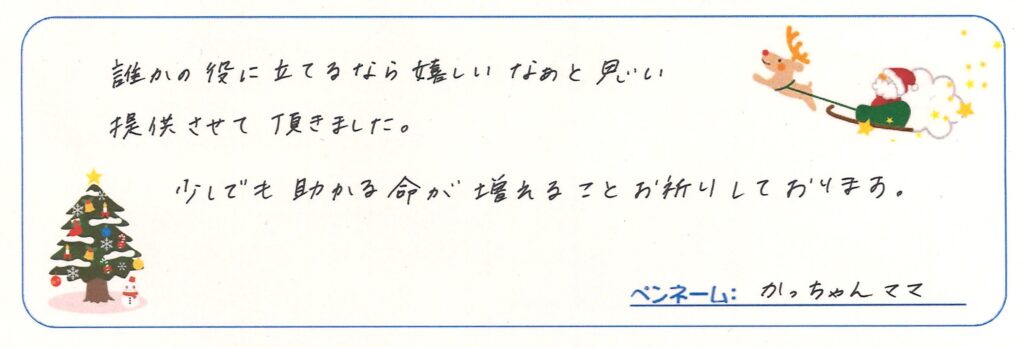 誰かの役に立てるなら嬉しいなぁと思い
提供させて頂きました。
少しでも助かる命が増えることお祈りしております。
ペンネーム: かっちゃんママ